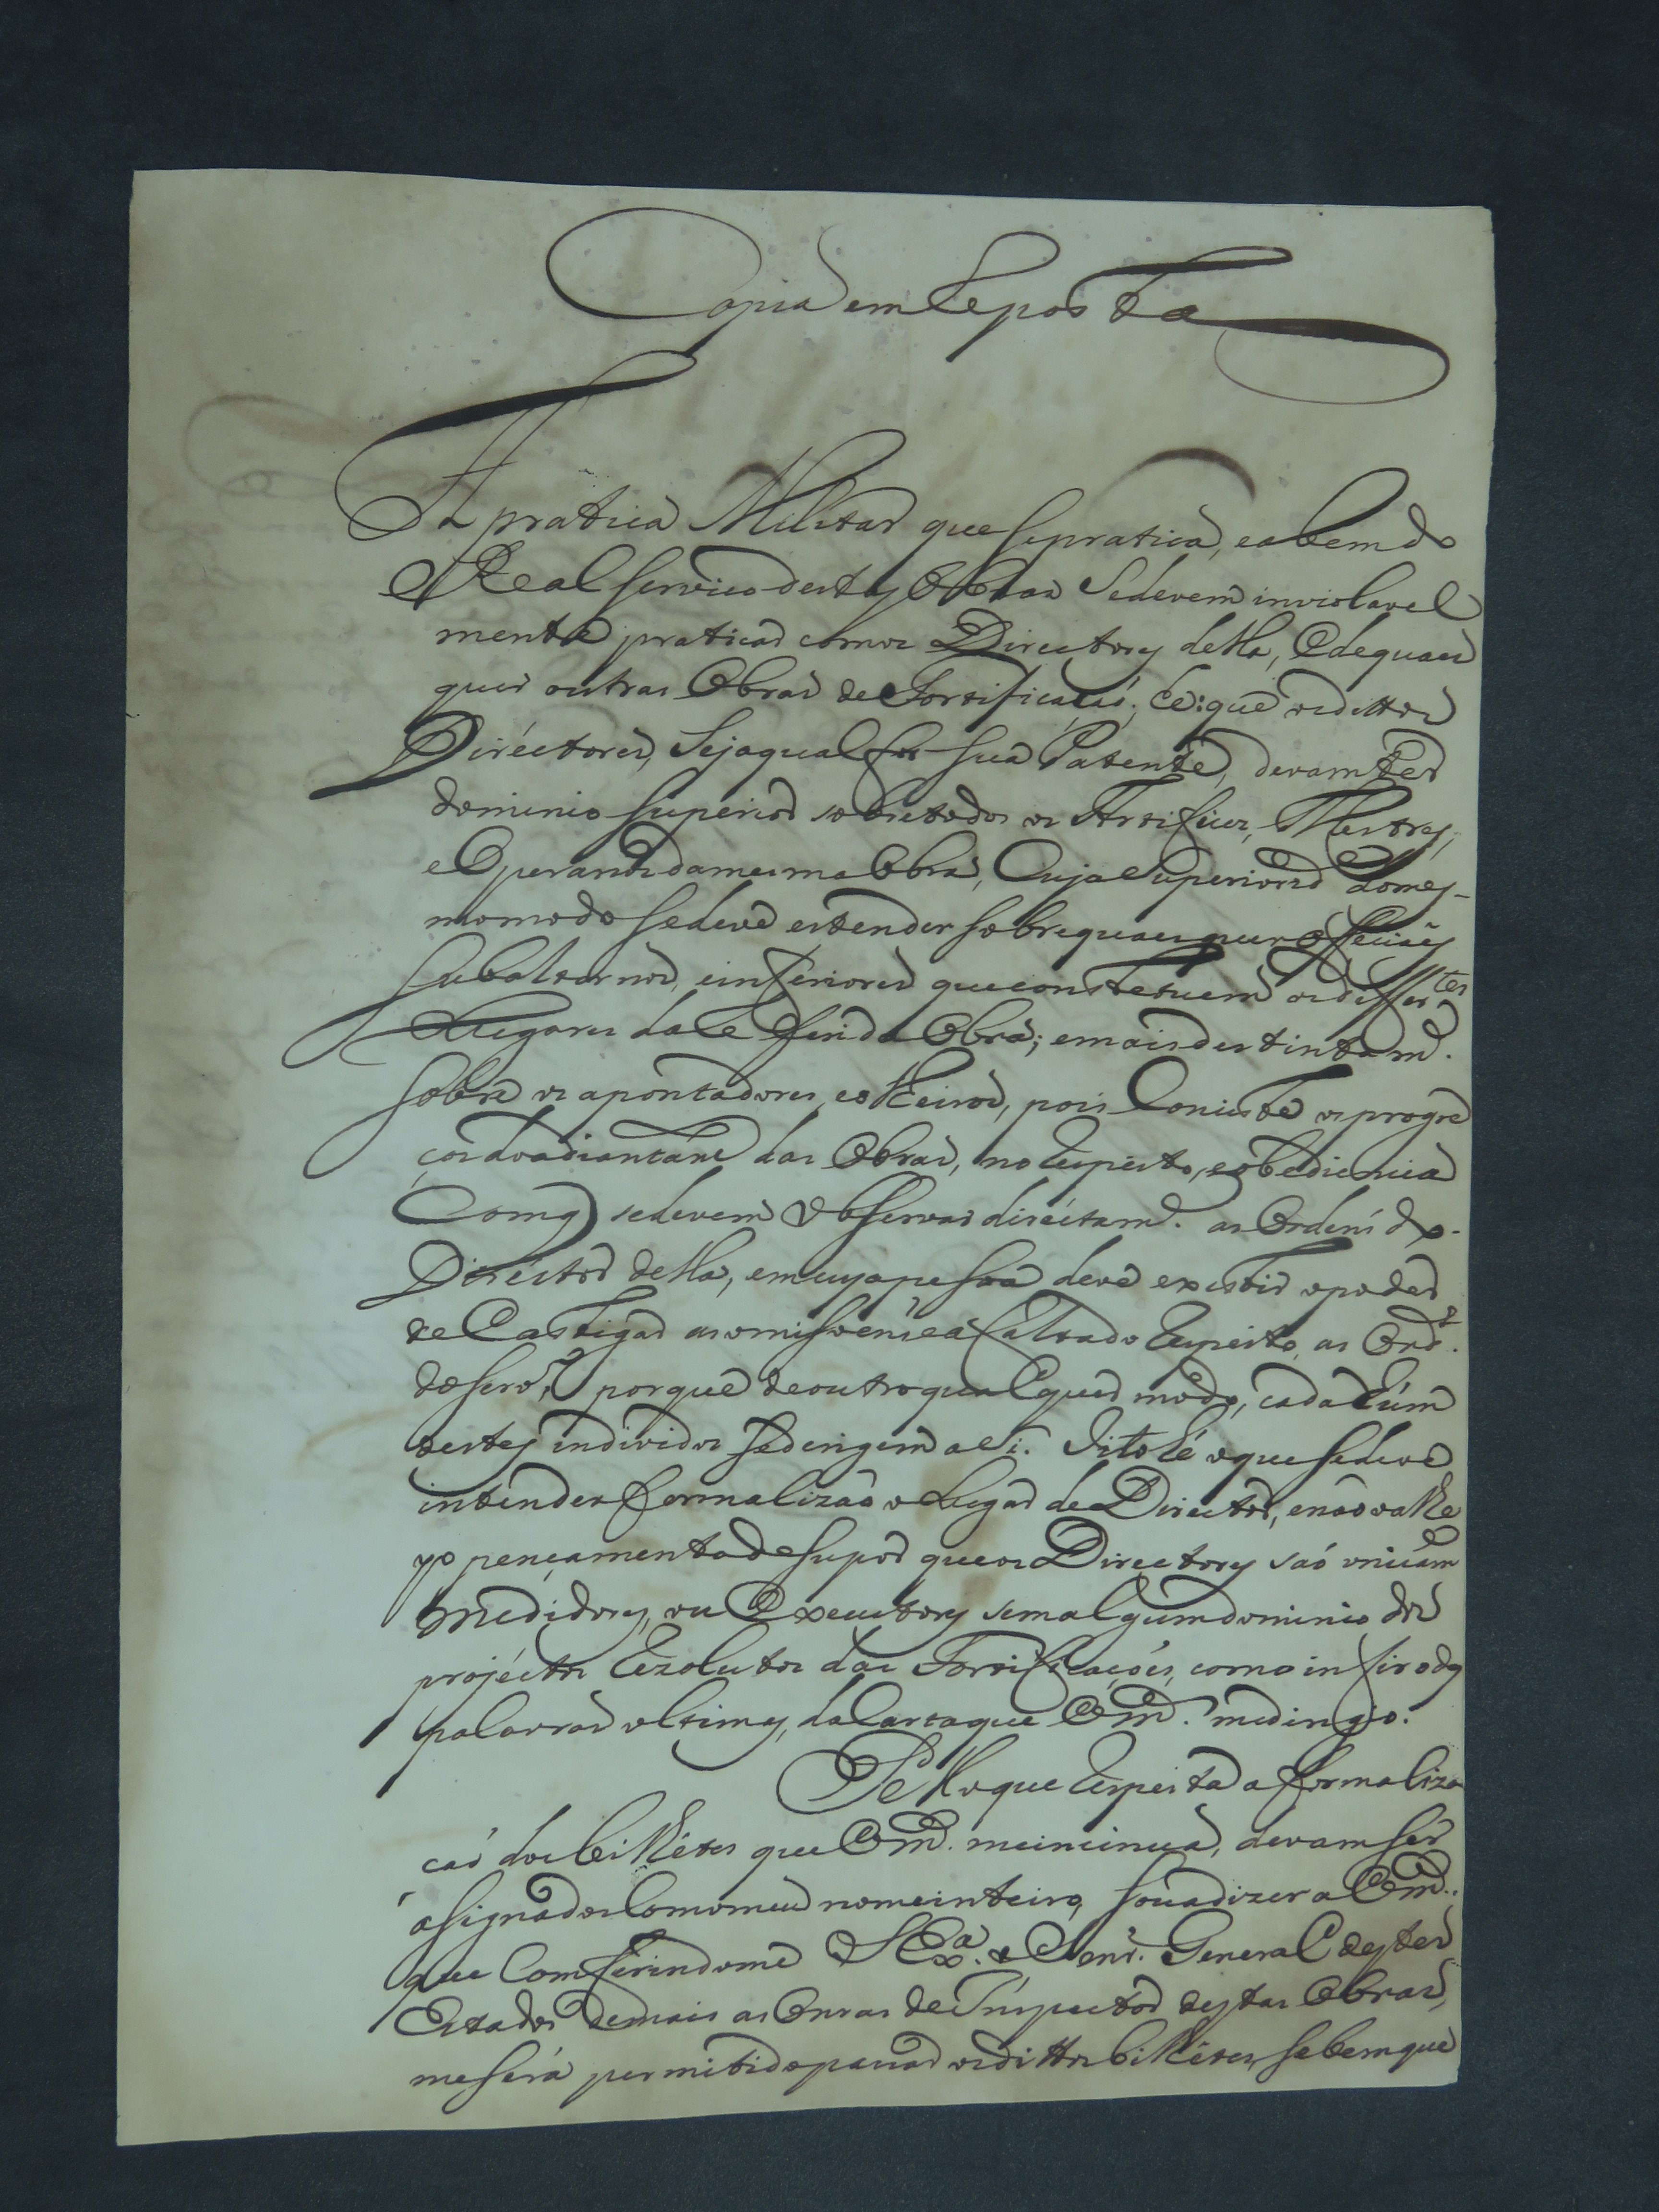 Copia em Reposta
Da pratica Militar que se pratica, ea bem do
Real serviço destas Obras Sedevem inviolavel
mente praticar com os Directores della, Edequaes
quer outras Obras de Fortificação, he: que os dittos
Diréctores, Seja qual for sua Patente, devam ter
dominio superior sobre todos os Artifices, Mestres,
e Operarios da mesma Obra, Cuja Superiorid. do mes-
mo modo se deve estender sobre quaes quer Officiaes
subalternos, e inferiores que constetuem os differ.tes
Lugares da Referida Obra; e mais destintam.e
sobre os apontadores, e olheiros, pois Conciste os progre
ços do adiantam.e das Obras, no Respeito, e obediencia
Com q sedevem Observar diréctam.e as Ordens do
Diréctor della, em cuja pessoa deve existir o poder
de Castigar as omissoens e a falta do Respeito, as Ord.s
do serv.o, porque de outro qual quer modo, cada húm
destes individos se derigem a si. Isto hé o que se deve
intender formalizar o Lugar de Director, e não o alhe
yo pençamento de supor que os Directores saó unicam.e
Medidores, ou Executores sem algum dominio dos
projéctos Rezolutos das Fortificaçoés, como infiro das
palavras ultimas, da Carta que Vm.e me dirigio.
Pello que Respeita a formaliza
cáo dos bilhétes que Vm.e me incinua, devam sér
asignados Com o meu nome inteiro, sou a dizer a Vm.e
que Comferindome S. Ex.a o Senr. General destes
Estados demais as Onras de Inspector destas Obras,
me será permitido passar os dittos bilhétes, se bem que